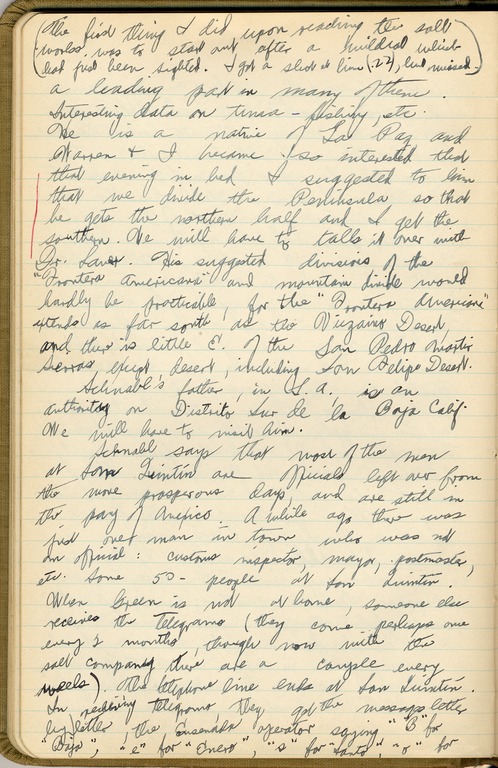 (The first thing I did upon reaching the salt
works was to start out after a mildred which
had just been sighted. I got a shot at him (.22), but missed.)
a leading part in many of them.
Interesting data on tuna-fishing, etc.
He is a native of La Paz and
Warren & I became so interested that
that evening in bed I suggested to him
that we divide the Peninsula so that
he gets the northern half and I get the
southern. We will have to talk it over with
Dr. His suggested divisions of the
"Frontera Americana" and mountain divide would
hardly be practicable, for the "Frontera Americana"
extends as far south as the Vizcaino Desert,
and there is little E. of the San Pedro Martir
Sierras, except desert, including San Felipe Desert.
Schnabl's father, in L.A. is an
authority on Distrito Sur de la Baja Calif.
We will have to visit him.
Schnabl says that most of the men
at San Quintín are officials left over from
the more prosperous days, and are still in
the pay of Mexico. A while ago there was
just one man in town who was not
an official: customs inspector, mayor, postmaster,
etc. Some 50- people at San Quintín.
When Green is not at home, someone else
receives the telegrams (they come perhaps one
every 2 months, though now with the
salt company there are a couple every
week). The telephone line ends at San Quintín.
In receiving telegrams, they get the message letter
by letter, the Ensenada operator saying "B" for
"Baja", "e" for "Enero", "s" for "santo", "o" for